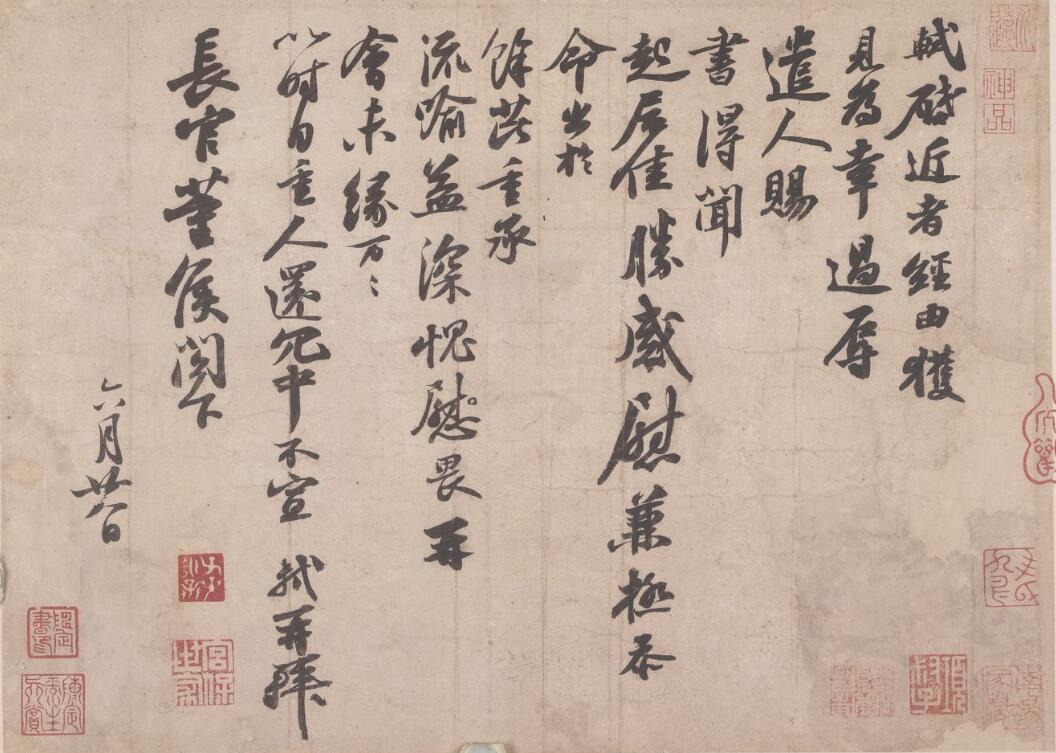 軾啟近者經由獲
見為幸過辱
遣人賜
書得聞
起居佳勝感慰兼極忝
命出於
餘芘重承
流喻益深愧慰畏再
會未緣万〻
以時自重人還冗中不宣軾再拜
長官董侯閣下
六月廿八日
神品